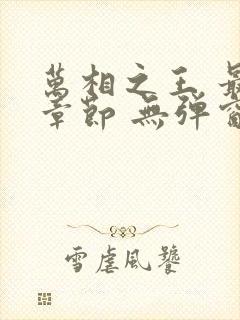 萬相之王 最
章節 無彈窗
雪虐風饕